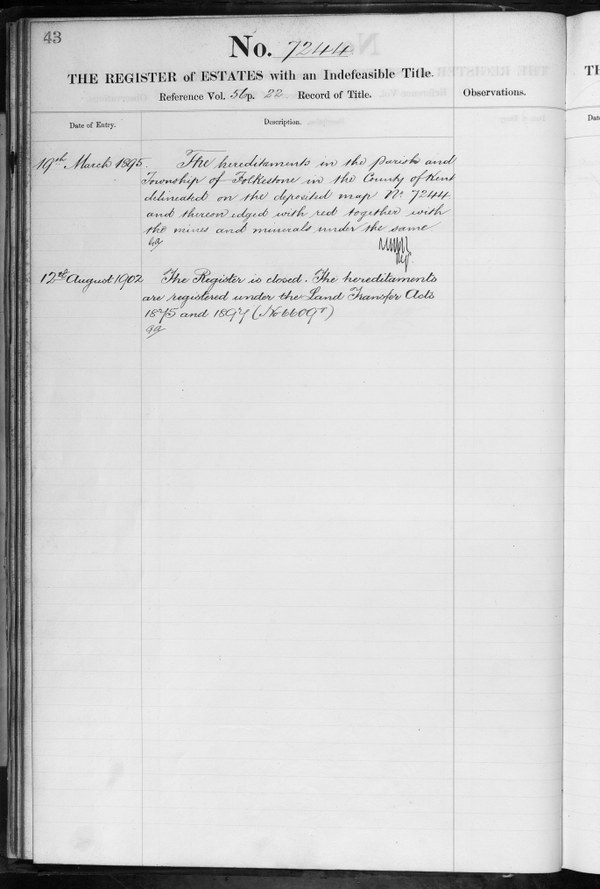 43
No. 7244
THE REGISTER of ESTATES with an Indefeasible Title.
Reference Vol. 56 p. 22 Record of Title.
Observations.
Date of Entry.
Description.
19th March 1895
The hereditaments in the parish and
Township of Folkestone in the County of Kent
delineated on the deposited map No 7244
and thereon edged with red together with
the mines and minerals under the same
12th August 1902
The Register is closed. The hereditaments
are registered under the Land Transfer Acts
1875 and 1897 (No 66097)